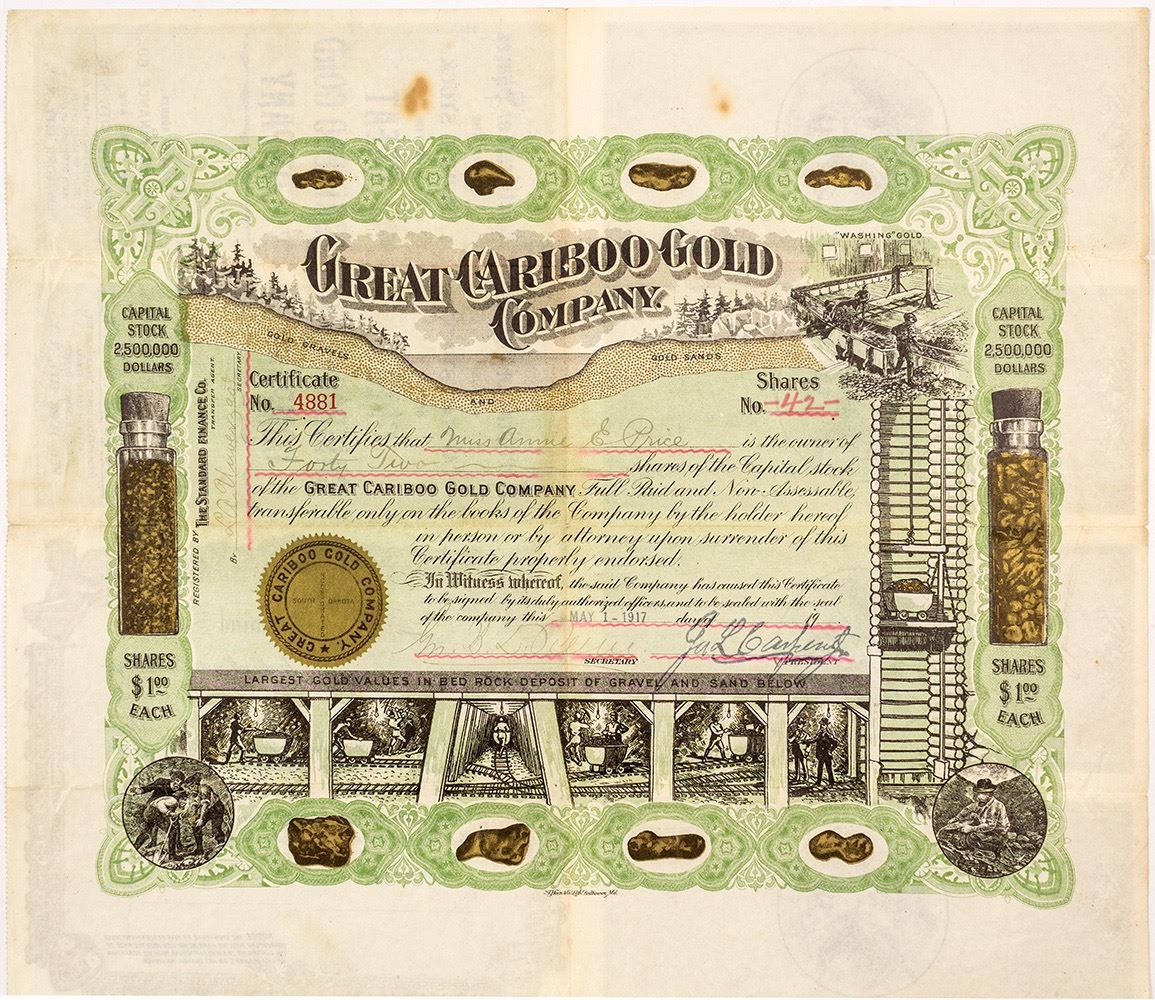 "WASHING" GOLD.
GREAT CARIBOO GOLD
COMPANY.
CAPITAL
STOCK
2,500,000
DOLLARS
CAPITAL
STOCK
2,500,000
DOLLARS
GOLD GRAVELS
AND
GOLD SANDS
Certificate
No. 4881
Shares
No. -42-
This Certifies that Miss Annie E Price is the owner of
Forty Two shares of the Capital stock
of the GREAT CARIBOO GOLD COMPANY Full Paid and Non-Assessable,
transferable only on the books of the Company by the holder hereof
in person or by attorney upon surrender of this
Certificate properly endorsed.
In Witness whereof, the said Company has caused this Certificate
to be signed by its duly authorized officers and to be sealed with the seal
of the company this MAY 1-1917 day of 19
Geo L Carpenter
SECRETARY
PRESIDENT
REGISTERED BY THE STANDARD FINANCE CO.
TRANSFER AGENT.
BY
SECRETARY
GREAT CARIBOO GOLD COMPANY
SOUTH DAKOTA
INCORPORATED
SHARES
$1.00
EACH
SHARES
$1.00
EACH
LARGEST GOLD VALUES IN BED ROCK DEPOSIT OF GRAVEL AND SAND BELOW